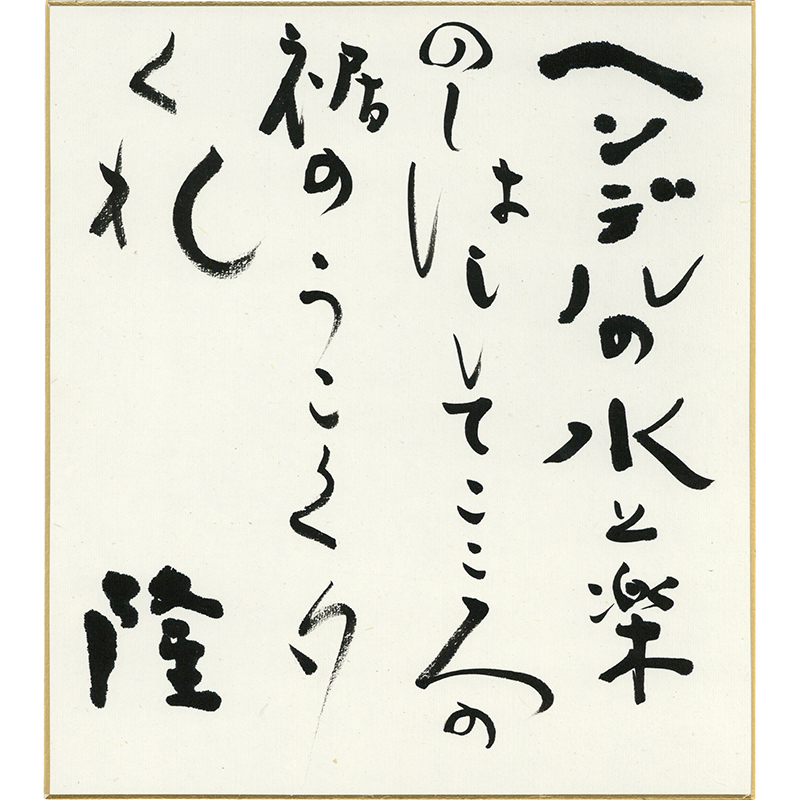 ヘンデルの水上楽
のしはししてここ人の
裾のうこく夕
くれ
隆